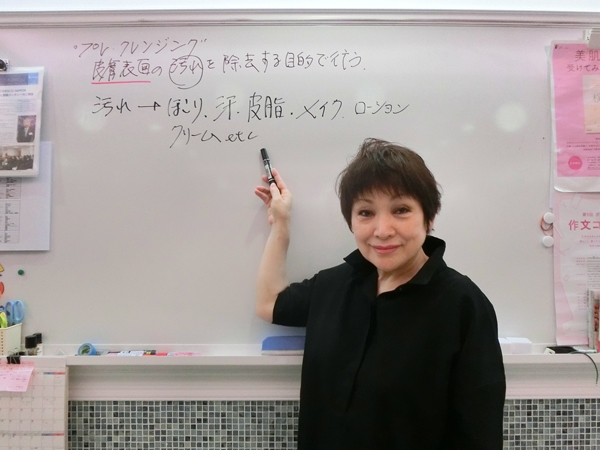 "プレ・クレンジング"
皮膚表面の汚れを除去する目的で行う.
汚れ → ほこり、汗、皮脂・メイク、ローション
クリーム etc
美肌
受けてみ
作文コ